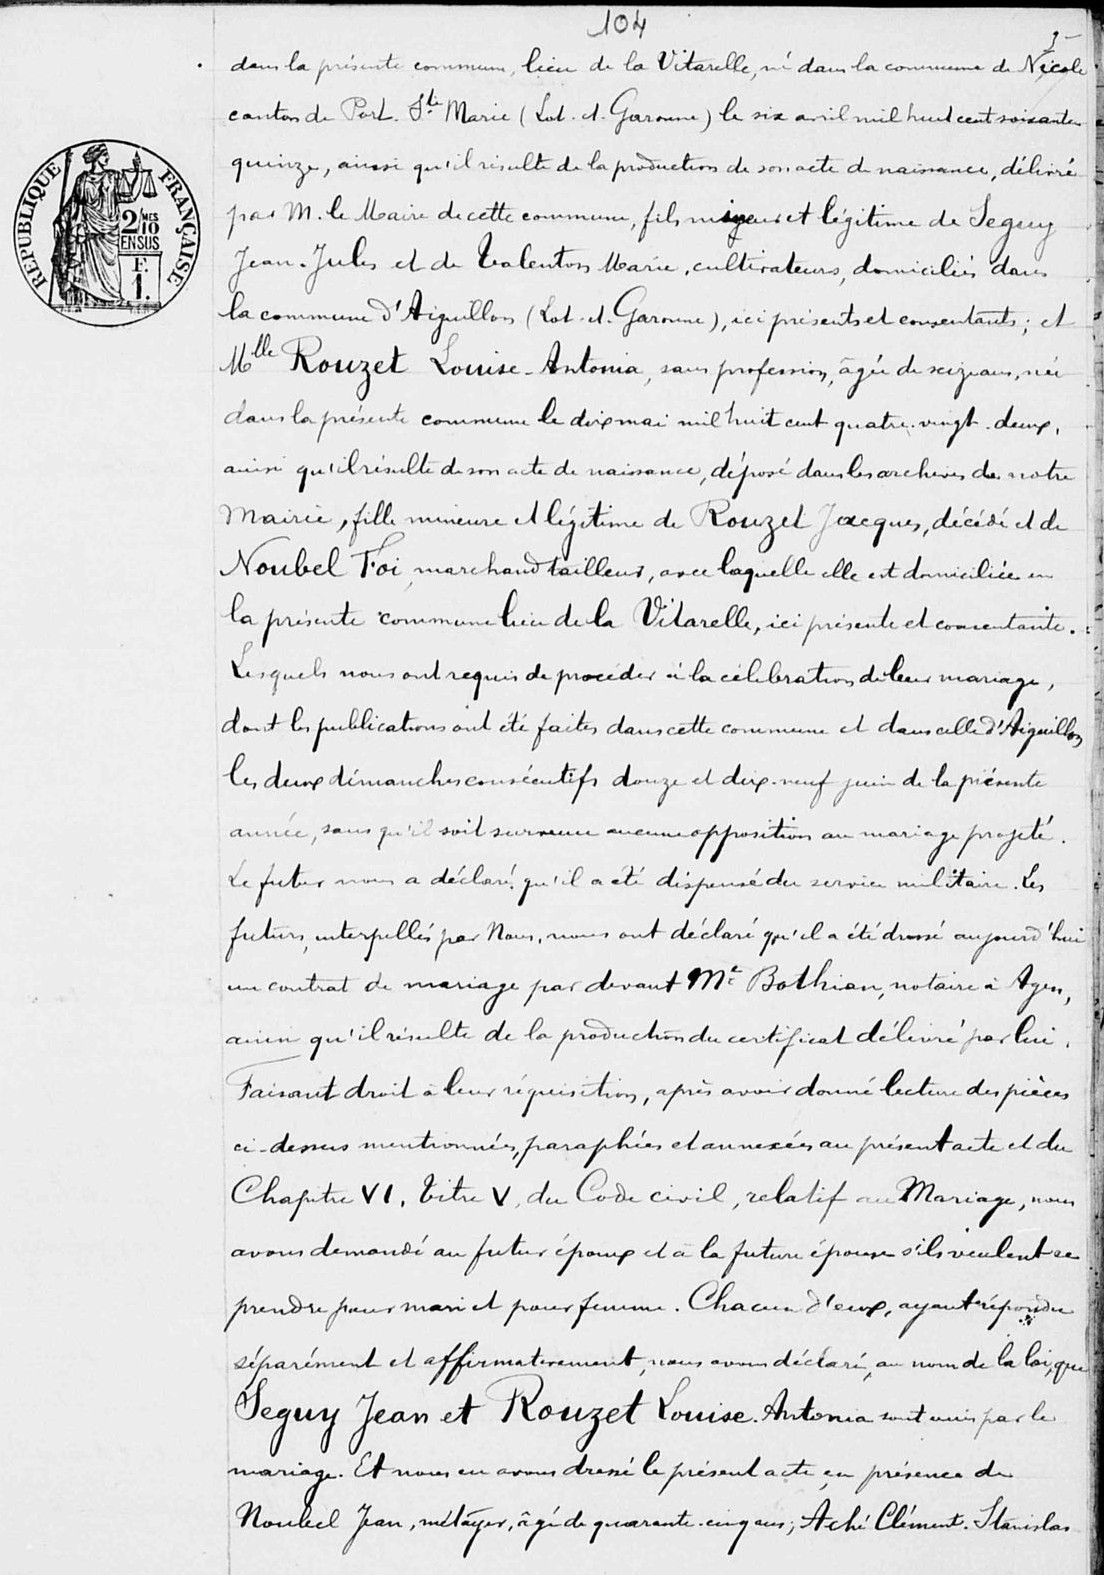 104
dans la présente commune, lieu de la Vitarelle, né dans la commune de Nicole
canton de Port. Ste Marie (Lot-et-Garonne) le six avril mil huit cent soixante
quinze, ainsi qu'il résulte de la production de son acte de naissance, délivré
par M. le Maire de cette commune, fils majeur et légitime de Seguy
Jean-Jules et de Valenton Marie, cultivateurs, domiciliés dans
la commune d'Aiguillon (Lot-et-Garonne), ici présents et consentants; et
Mlle Rouzet Louise-Antonia, sans profession, âgée de seize ans, née
dans la présente commune le dix mai mil huit cent quatre-vingt-deux,
ainsi qu'il résulte de son acte de naissance, déposé dans les archives de notre
Mairie, fille mineure et légitime de Rouzet Jacques, décédé et de
Noubel Foi, marchand tailleur, avec laquelle elle est domiciliée en
la présente commune lieu de la Vitarelle, ici présente et consentante.
Lesquels nous ont requis de procéder à la célébration de leur mariage,
dont les publications ont été faites dans cette commune et dans celle d'Aiguillon
les deux dimanches consécutifs douze et dix-neuf juin de la présente
année, sans qu'il soit survenu aucune opposition au mariage projeté.
Le futur nous a déclaré qu'il a été dispensé du service militaire. Les
futurs, interpellés par Nous, nous ont déclaré qu'il a été dressé aujourd'hui
un contrat de mariage par devant Me Bothian, notaire à Agen,
ainsi qu'il résulte de la production du certificat délivré par lui.
Faisant droit à leur réquisition, après avoir donné lecture des pièces
ci-dessus mentionnées, paraphées et annexées au présent acte et du
Chapitre VI, Titre V, du Code civil, relatif au Mariage, nous
avons demandé au futur époux et à la future épouse s'ils veulent se
prendre pour mari et pour femme. Chacun d'eux, ayant répondu
séparément et affirmativement, nous avons déclaré, au nom de la loi, que
Seguy Jean et Rouzet Louise-Antonia sont unis par le
mariage. Et nous en avons dressé le présent acte, en présence de
Noubel Jean, métayer, âgé de quarante-cinq ans; Aché Clément-Stanislas
RÉPUBLIQUE FRANÇAISE
2/10 MES
EN SUS
F.
1.